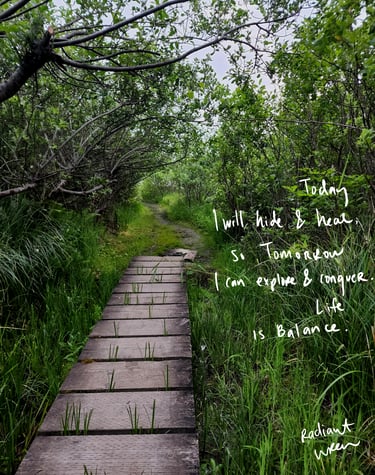 Today
I will hide & heal.
So Tomorrow
I can explore & conquer.
Life
is Balance.
Radiant
Wren